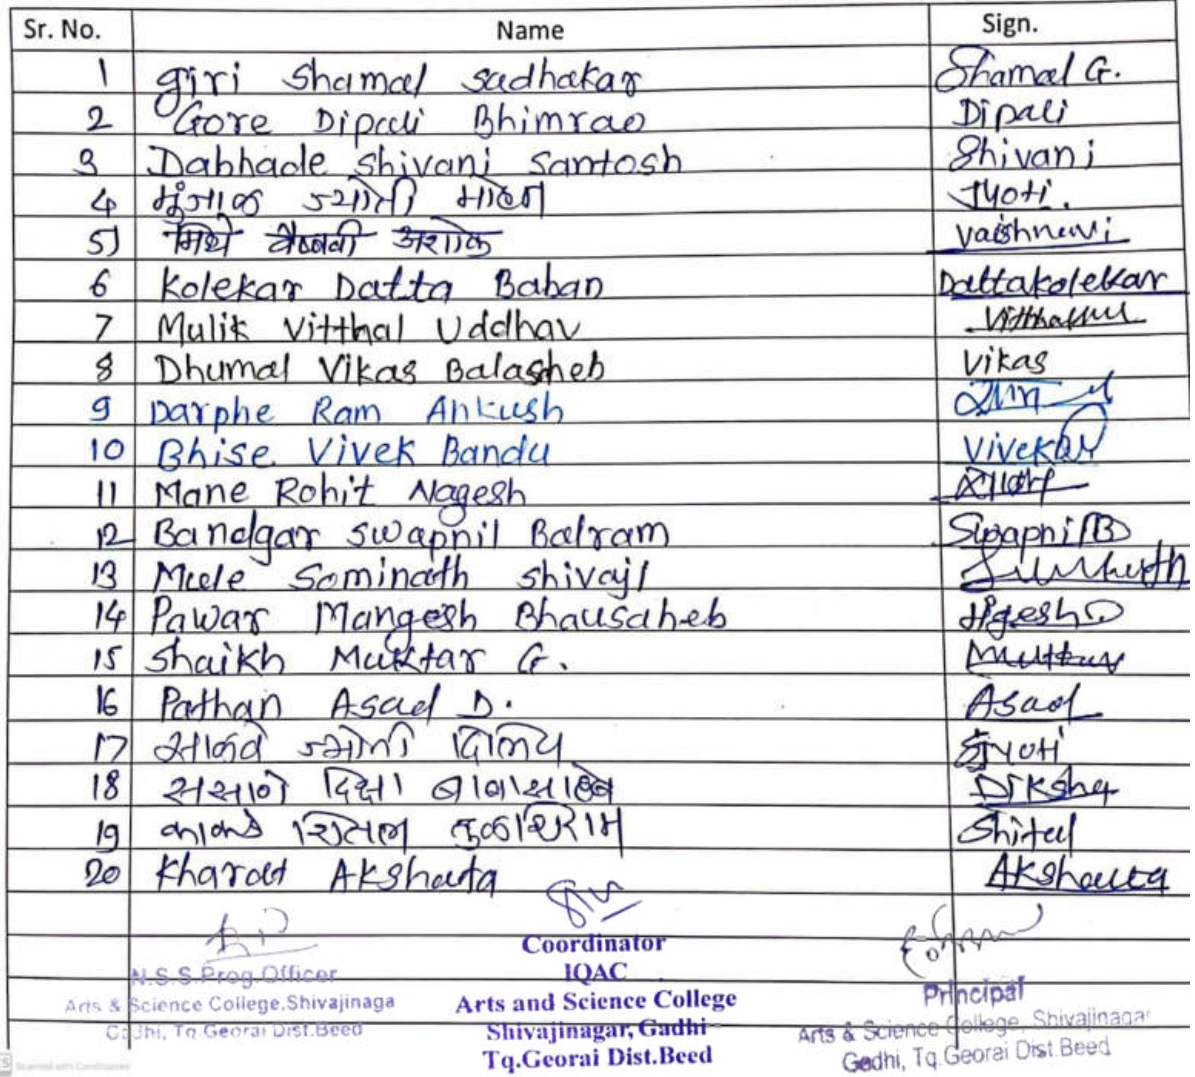 Sr. No. Name Sign.
1 giri Shamal Sudhakar Shamal G.
2 Gore Dipali Bhimrao Dipali
3 Dabhade Shivani Santosh Shivani
4 ज्योती Jyoti.
5) मिथे वैष्णवी अशोक vaishnavi
6 Kolekar Datta Baban Dattakolekar
7 Mulik Vitthal Uddhav
8 Dhumal Vikas Balasheb Vikas
9 Darphe Ram Ankush
10 Bhise Vivek Bandu Vivek
11 Mane Rohit Nagesh
12 Bandgar Swapnil Balram Swapnil B
13 Mule Sominath Shivaji
14 Pawar Mangesh Bhausaheb
15 Shaikh Muktar G.
16 Pathan Asad D. Asad
17 साळवे ज्योती दिलिप Jyoti
18 ससाणे दिक्षा बाबासाहेब Diksha
19 काकडे शितल तुळशिराम Shital
20 Kharat Akshata Akshata
N.S.S.Prog.Officer
Arts & Science College,Shivajinaga
Gadhi, Tq.Georai Dist.Beed
Coordinator
IQAC
Arts and Science College
Shivajinagar, Gadhi
Tq.Georai Dist.Beed
Principal
Arts & Science College, Shivajinagar
Gadhi, Tq.Georai Dist.Beed
Scanned with CamScanner